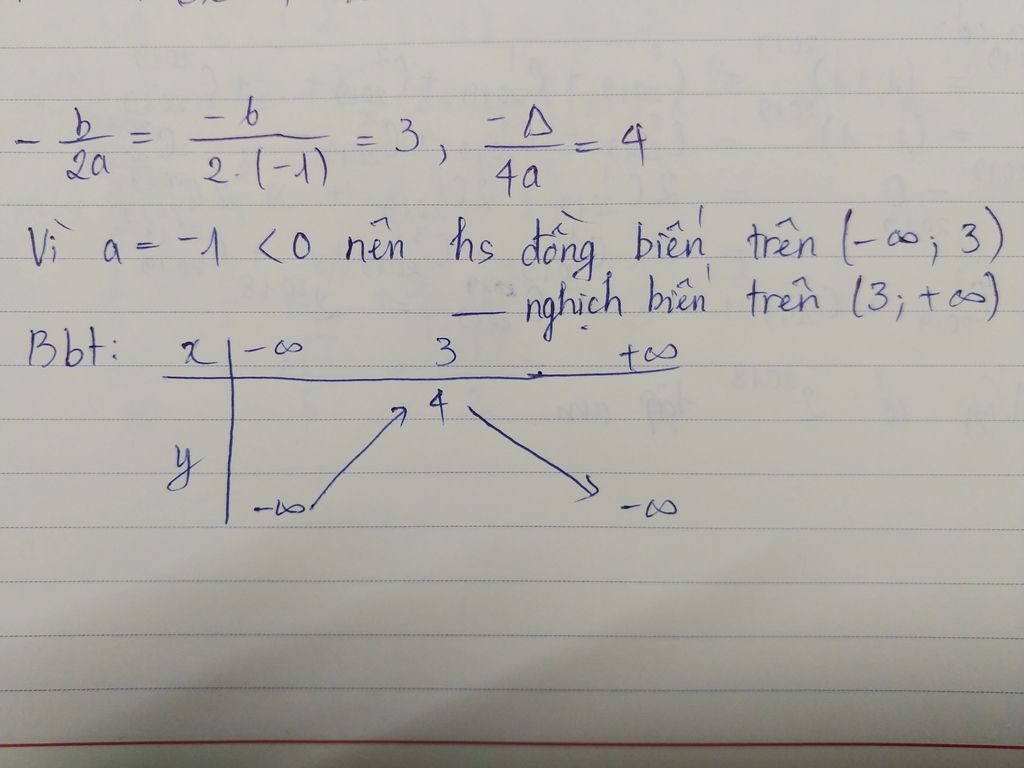 - b/2a = -6/2.(-1) = 3, -Δ/4a = 4
Vì a = -1 < 0 nên hs đồng biến trên (-∞; 3)
— nghịch biến trên (3; +∞)
Bbt: x -∞ 3 +∞
4
y
-∞ -∞